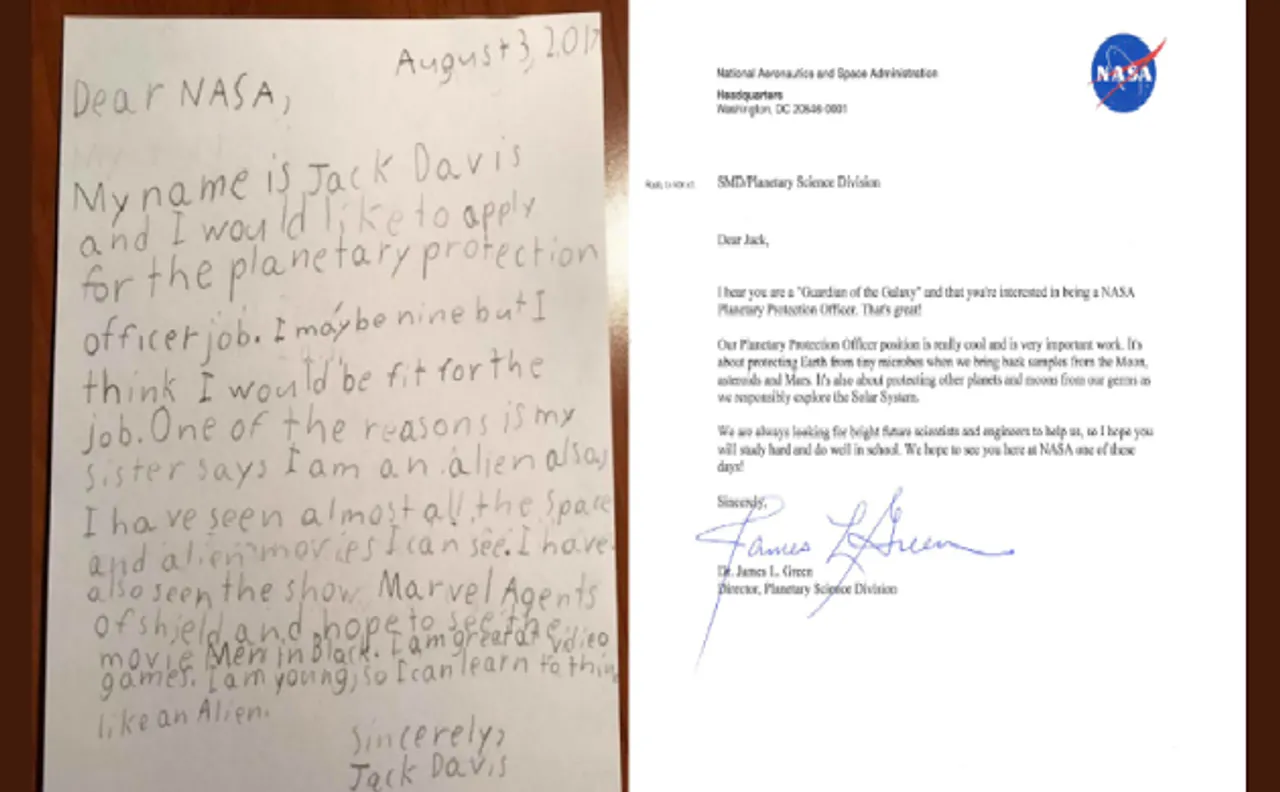 August 3, 2017
Dear NASA,
My name is Jack Davis
and I would like to apply
for the planetary protection
officer job. I may be nine but I
think I would be fit for the
job. One of the reasons is my
sister says I am an alien also,
I have seen almost all the space
and alien movies I can see. I have
also seen the show Marvel Agents
of shield and hope to see the
movie Men in Black. I am great at video
games. I am young, so I can learn to think
like an Alien.
Sincerely,
Jack Davis
NASA
National Aeronautics and Space Administration
Headquarters
Washington, DC 20546-0001
Reply to Attn of:
SMD/Planetary Science Division
Dear Jack,
I hear you are a "Guardian of the Galaxy" and that you're interested in being a NASA
Planetary Protection Officer. That's great!
Our Planetary Protection Officer position is really cool and is very important work. It's
about protecting Earth from tiny microbes when we bring back samples from the Moon,
asteroids and Mars. It's also about protecting other planets and moons from our germs as
we responsibly explore the Solar System.
We are always looking for bright future scientists and engineers to help us, so I hope you
will study hard and do well in school. We hope to see you here at NASA one of these
days!
Sincerely,
James L Green
Dr. James L. Green
Director, Planetary Science Division